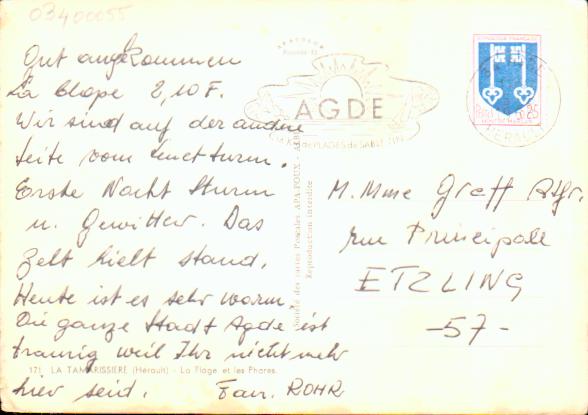 03400055
Gut angekommen
La Clape 2,10 F.
Wir sind auf der andre
Seite vom Leuchtturm.
Erste Nacht Sturm
u. Gewitter. Das
Zelt hielt stand.
Heute ist es sehr warm.
Die ganze Stadt Agde ist
traurig weil Ihr nicht mehr
hier seid. Fam. ROHR
171. LA TAMARISSIERE (Hérault) - La Plage et les Phares.
AGDE
PLAGES de SABLE FIN
Société des cartes Postales APA-POUX - ALBI
Reproduction interdite
REPUBLIQUE FRANÇAISE
0,25
HERAULT
M. Mme Greff
rue Principale
ETZLING
-57-